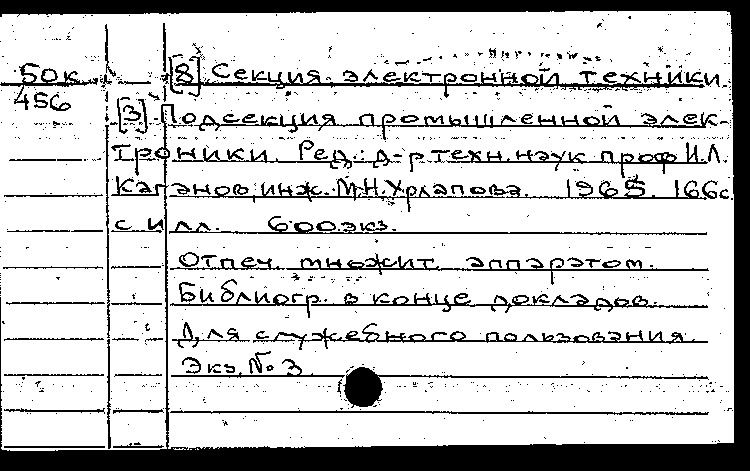 50к [8] Секция электронной техники
456 [3] Подсекция промышленной элек-
троники. Ред.: д-р техн. наук проф И.Л.
Каганов, инж. М.Н. Хрлапова. 1965. 166с.
с илл. 600 экз.
Отпеч. множит. аппаратом.
Библиогр. в конце докладов.
Для служебного пользования.
Экз. № 3.